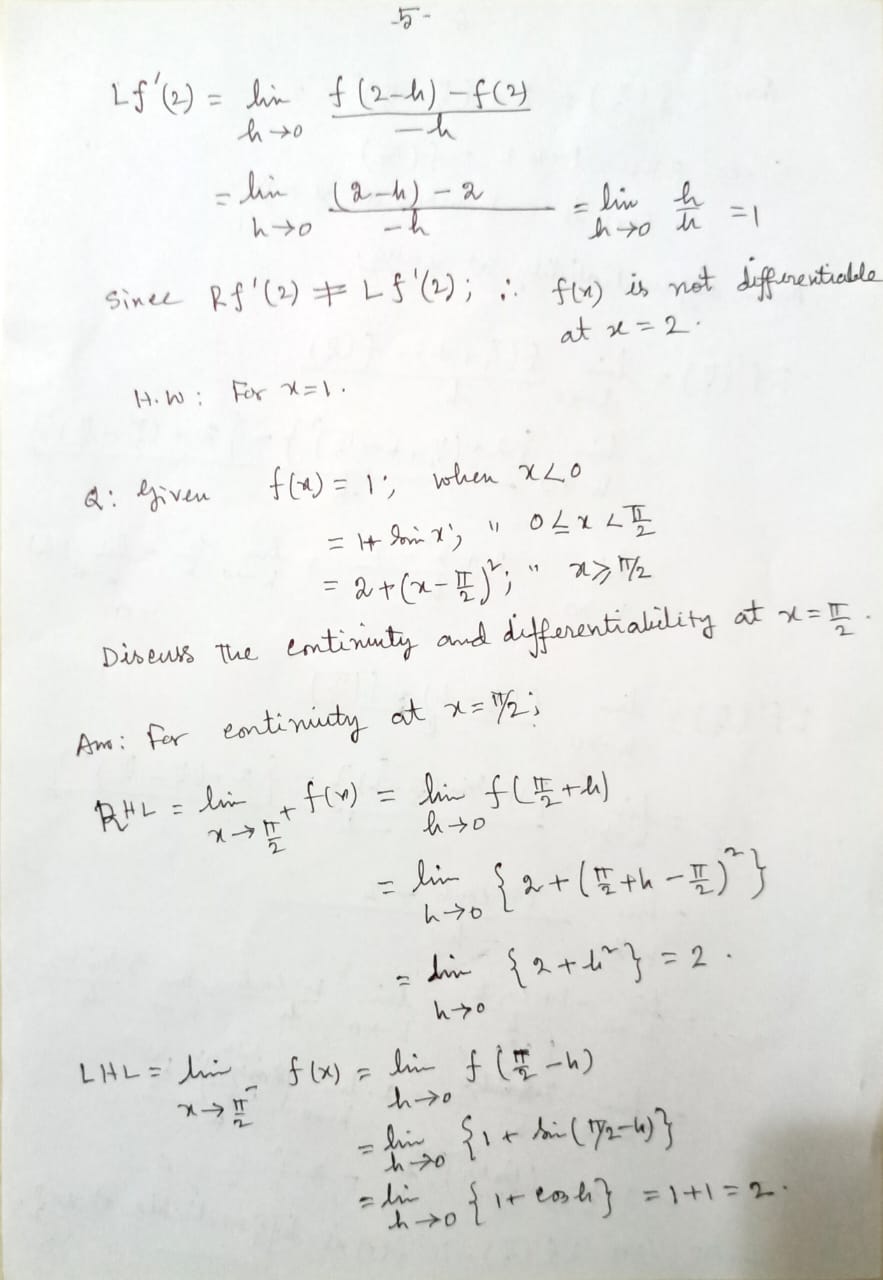 -5-
Lf'(2) = lim h→0 (f(2-h) - f(2))/(-h)
= lim h→0 ((2-h) - 2)/(-h) = lim h→0 h/h = 1
Since Rf'(2) ≠ Lf'(2); ∴ f(x) is not differentiable
at x = 2.
H.W: For x=1.
Q: Given f(x) = 1; when x<0
= 1+ Sin x; " 0 ≤ x < π/2
= 2+(x-π/2)²; " x ≥ π/2
Discuss the continuty and differentiability at x = π/2.
Ans: For continuty at x = π/2;
RHL = lim x→π/2+ f(x) = lim h→0 f(π/2+h)
= lim h→0 {2+(π/2+h-π/2)²}
= lim h→0 {2+h²} = 2.
LHL = lim x→π/2- f(x) = lim h→0 f(π/2-h)
= lim h→0 {1+ Sin(π/2-h)}
= lim h→0 {1+ cosh} = 1+1 = 2.